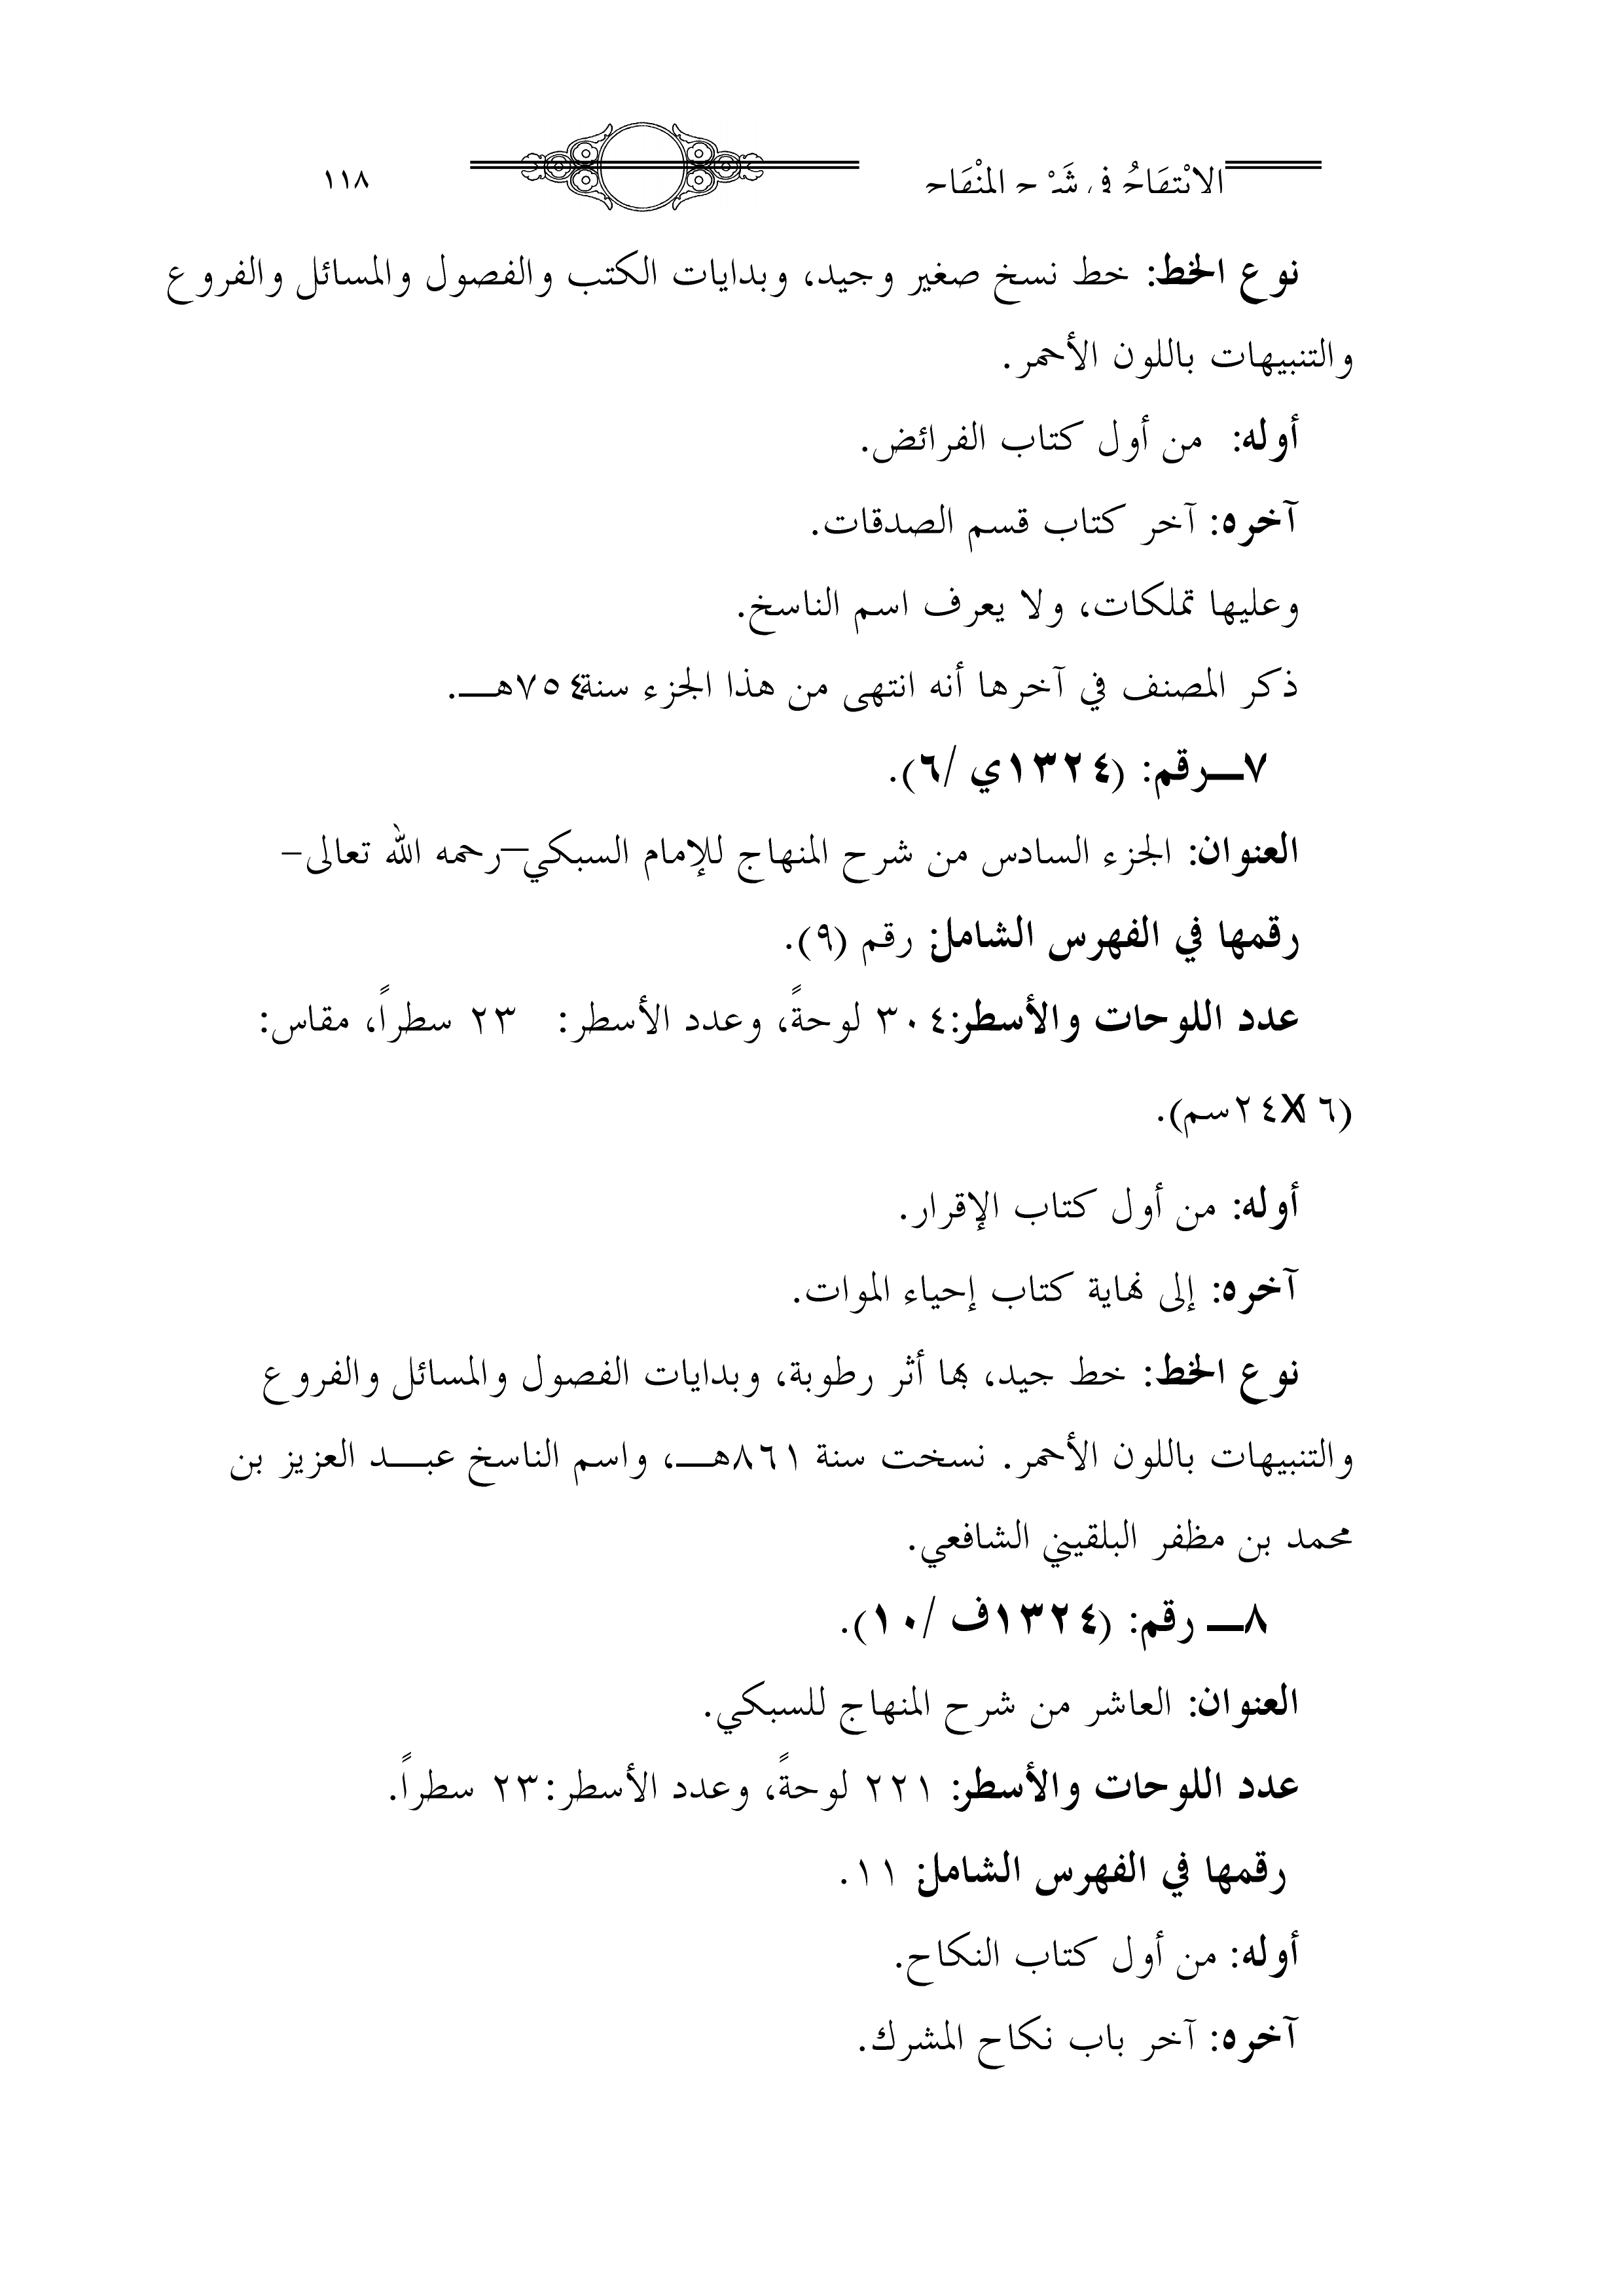 الابْتِهَاجُ في شَرْحِ المِنْهَاج ١١٨
نوع الخط: خط نسخ صغير وجيد، وبدايات الكتب والفصول والمسائل والفروع
والتنبيهات باللون الأحمر.
أوله: من أول كتاب الفرائض.
آخره: آخر كتاب قسم الصدقات.
وعليها تملكات، ولا يعرف اسم الناسخ.
ذكر المصنف في آخرها أنه انتهى من هذا الجزء سنة٧٥٤هـ.
٧ـرقم: (١٣٢٤ي /٦).
العنوان: الجزء السادس من شرح المنهاج للإمام السبكي–رحمه الله تعالى–
رقمها في الفهرس الشامل: رقم (٩).
عدد اللوحات والأسطر:٣٠٤ لوحةً، وعدد الأسطر: ٢٣ سطراً، مقاس:
(١٦X٢٤سم).
أوله: من أول كتاب الإقرار.
آخره: إلى نهاية كتاب إحياء الموات.
نوع الخط: خط جيد، بها أثر رطوبة، وبدايات الفصول والمسائل والفروع
والتنبيهات باللون الأحمر. نسخت سنة ٨٦١هـ، واسم الناسخ عبـد العزيز بن
محمد بن مظفر البلقيني الشافعي.
٨ـ رقم: (١٣٢٤ف /١٠).
العنوان: العاشر من شرح المنهاج للسبكي.
عدد اللوحات والأسطر: ٢٢١ لوحةً، وعدد الأسطر:٢٣ سطراً.
رقمها في الفهرس الشامل: ١١.
أوله: من أول كتاب النكاح.
آخره: آخر باب نكاح المشرك.